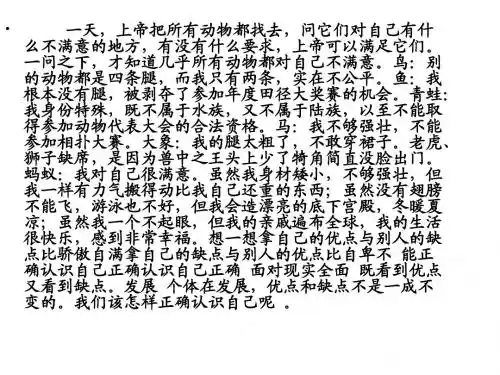 • 一天，上帝把所有动物都找去，问它们对自己有什
么不满意的地方，有没有什么要求，上帝可以满足它们。
一问之下，才知道几乎所有动物都对自己不满意。鸟：别
的动物都是四条腿，而我只有两条，实在不公平。鱼：我
根本没有腿，被剥夺了参加年度田径大奖赛的机会。青蛙：
我身份特殊，既不属于水族，又不属于陆族，以至不能取
得参加动物代表大会的合法资格。马：我不够强壮，不能
参加相扑大赛。大象：我的腿太粗了，不敢穿裙子。老虎、
狮子缺席，是因为兽中之王头上少了犄角简直没脸出门。
蚂蚁：我对自己很满意。虽然我身材矮小，不够强壮，但
我一样有力气搬得动比我自己还重的东西；虽然没有翅膀
不能飞，游泳也不好，但我会造漂亮的底下宫殿，冬暖夏
凉；虽然我一个不起眼，但我的亲戚遍布全球，我的生活
很快乐，感到非常幸福。想一想拿自己的优点与别人的缺
点比骄傲自满拿自己的缺点与别人的优点比自卑不 能正
确认识自己正确认识自己正确 面对现实全面 既看到优点
又看到缺点。发展 个体在发展，优点和缺点不是一成不
变的。我们该怎样正确认识自己呢 。